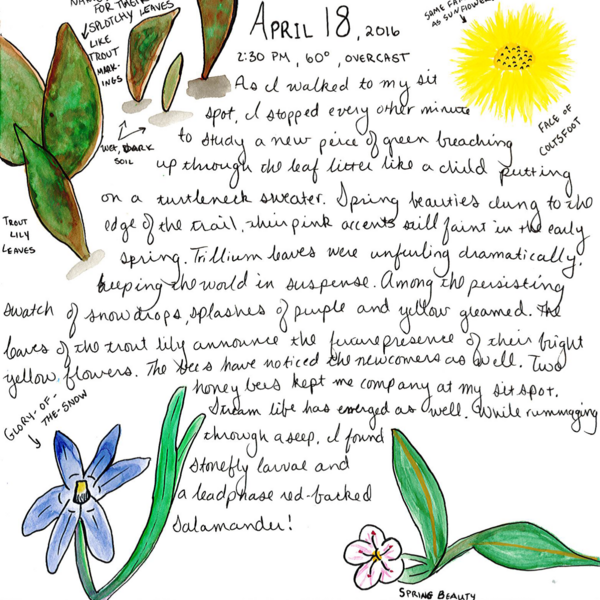 NAM
FOR THEIR
SPLOTCHY LEAVES
LIKE
TROUT
MARK-
INGS
APRIL 18, 2016
SAME FA
AS SUNFLOWE
2:30 PM, 60°, OVERCAST
As I walked to my sit
spot, I stopped every other minute
to study a new peice of green breaching
up through the leaf litter like a child putting
on a turtleneck sweater. Spring beauties clung to the
edge of the trail, their pink accents still faint in the early
spring. Trillium leaves were unfurling dramatically,
keeping the world in suspense. Among the persisting
swatch of snowdrops, splashes of purple and yellow gleamed. The
leaves of the trout lily announce the future presence of their bright
yellow flowers. The bees have noticed the newcomers as well. Two
honey bees kept me company at my sit spot.
Stream life has emerged as well. While rummaging
through a seep, I found
stonefly larvae and
a leadphase red-backed
salamander!
FACE OF
COLTSFOOT
WET, DARK
SOIL
TROUT
LILY
LEAVES
GLORY-OF-
THE-SNOW
SPRING BEAUTY